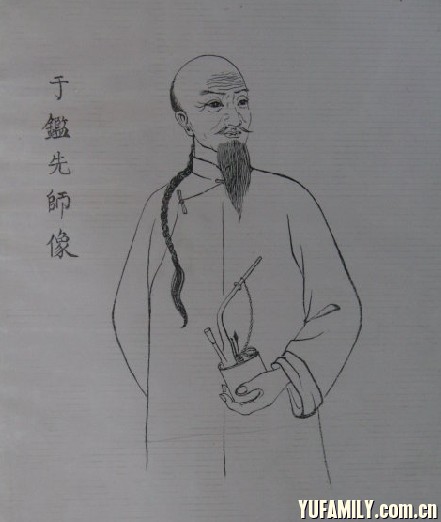 于鑑先師像
YUFAMILY.com.cn